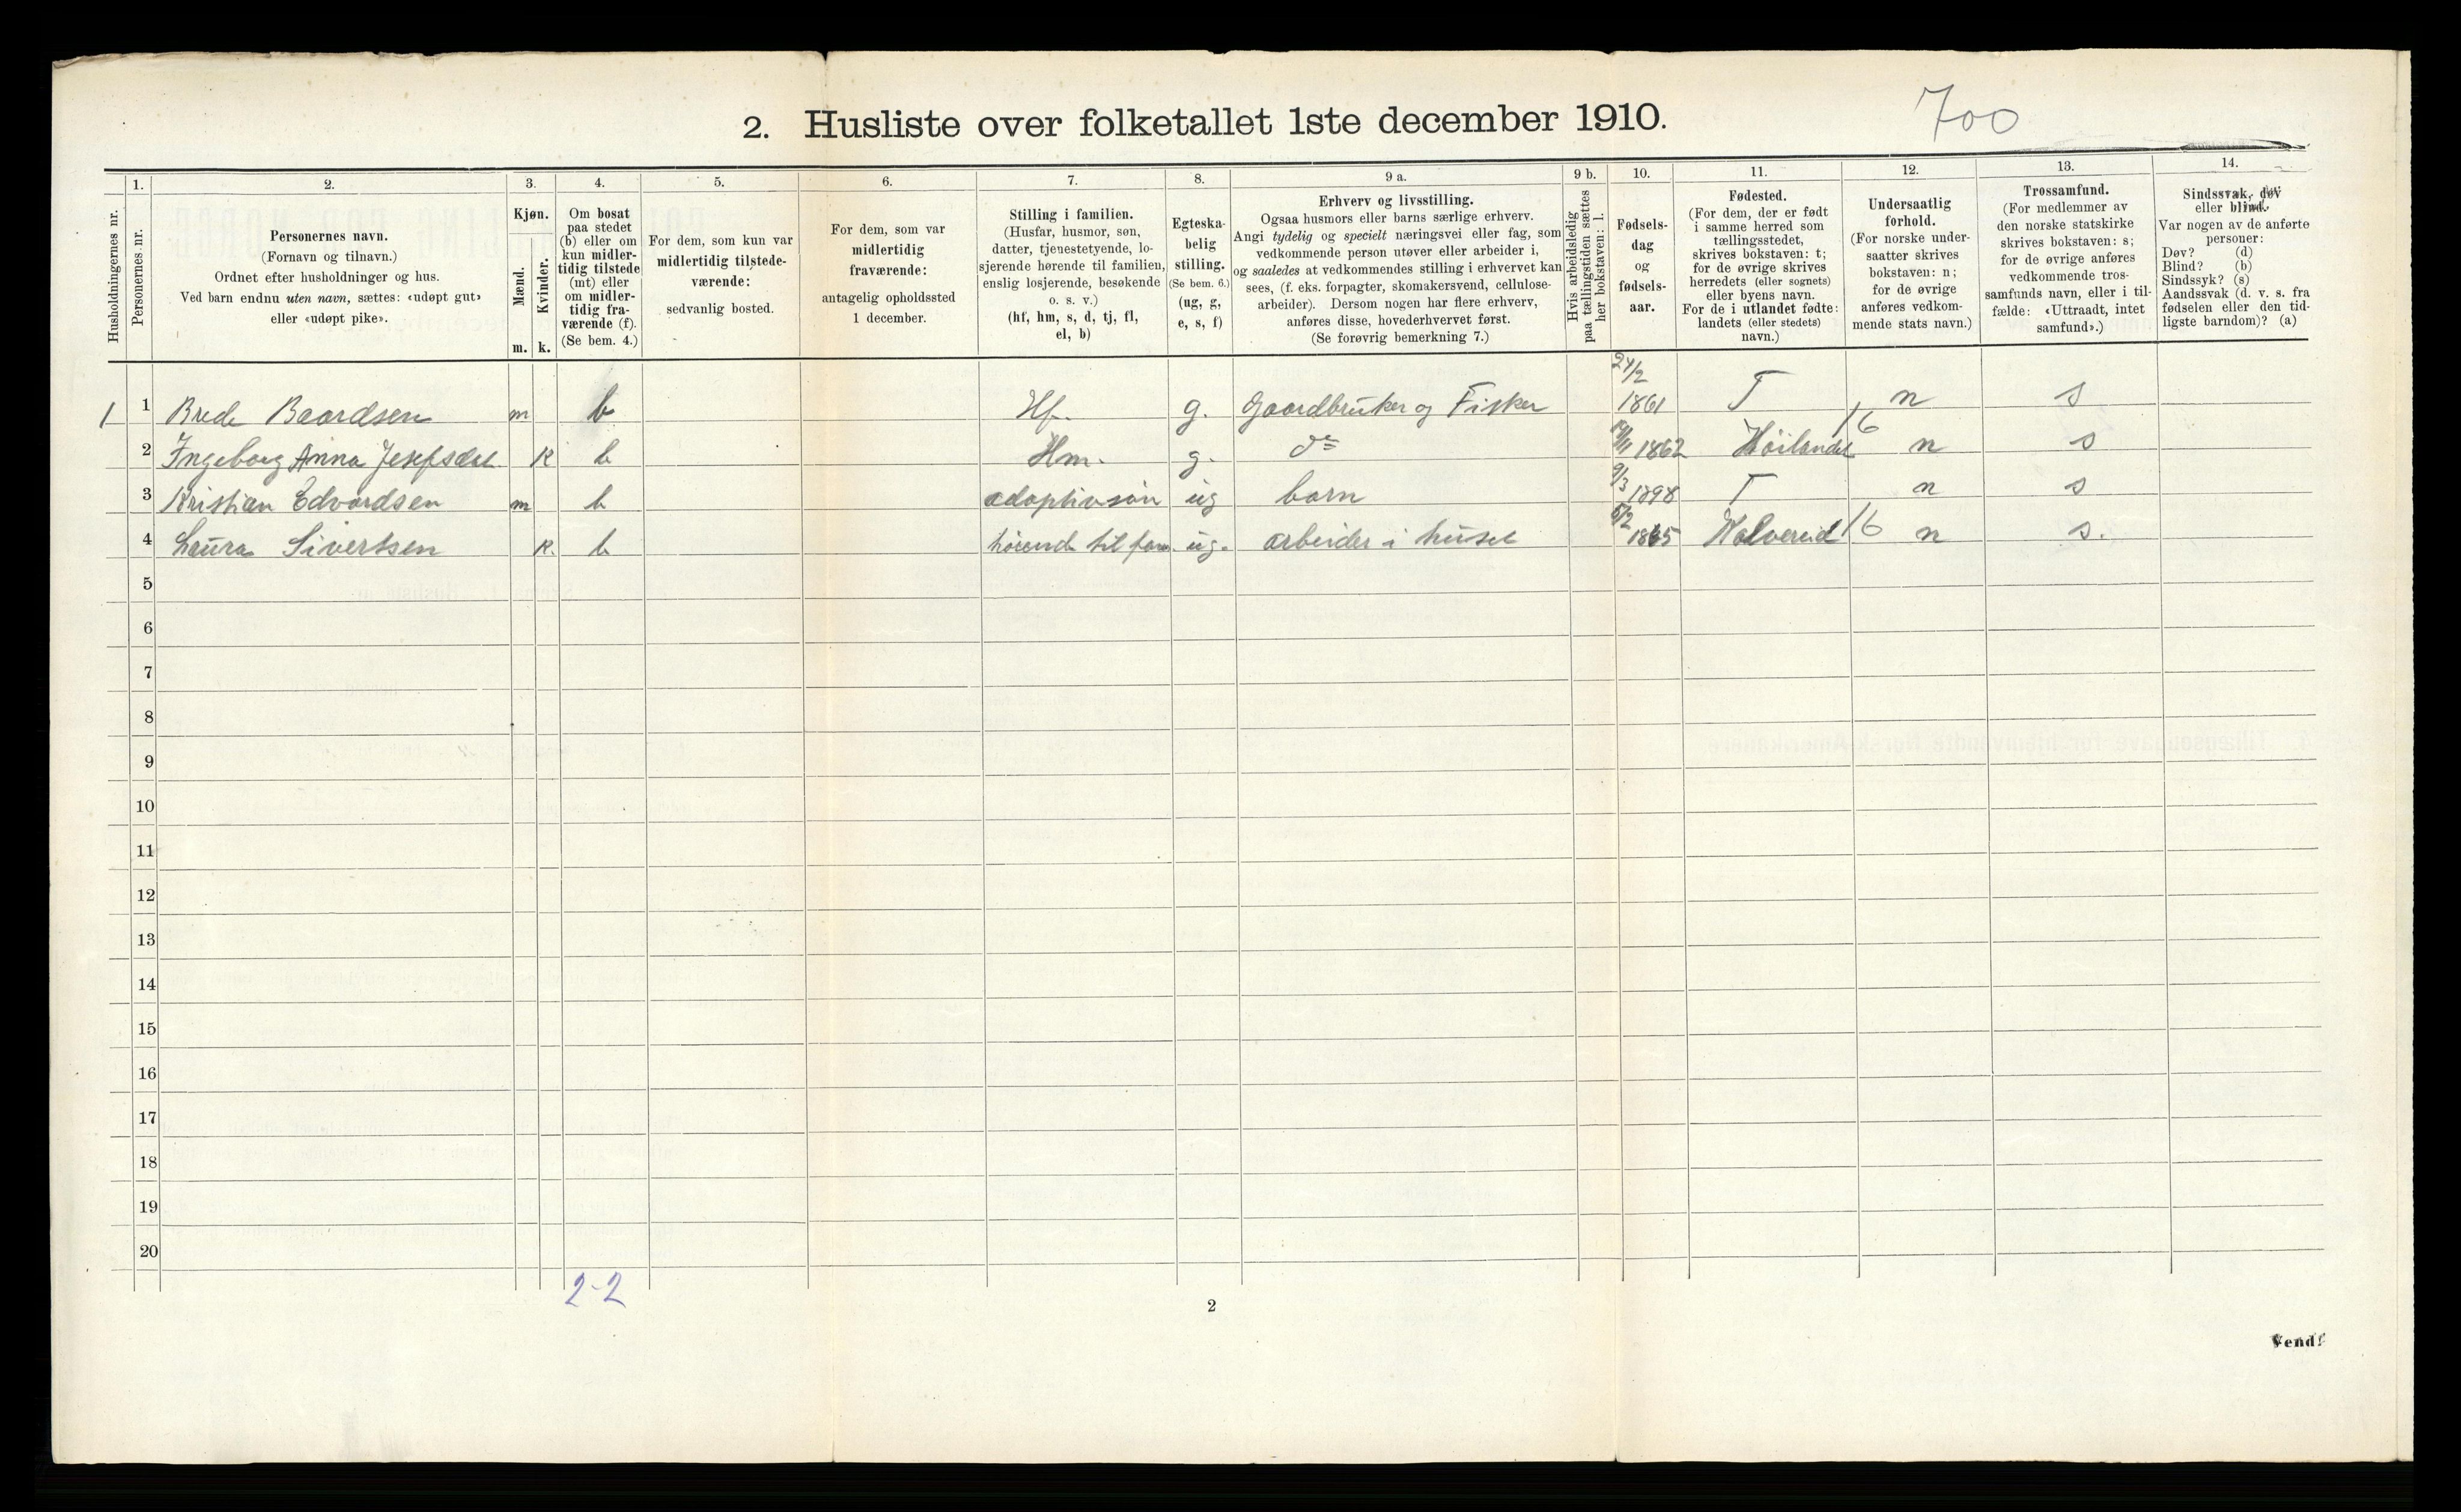 2. Husliste over folketallet 1ste december 1910.
700
Husholdningernes nr.
1.
Personernes nr.
2.
Personernes navn.
(Fornavn og tilnavn.)
Ordnet efter husholdninger og hus.
Ved barn endnu uten navn, sættes: «udøpt gut»
eller «udøpt pike».
3.
Kjøn.
Mænd.
Kvinder.
m. k.
4.
Om bosat
paa stedet
(b) eller om
kun midler-
tidig tilstede
(mt) eller
om midler-
tidig fra-
værende (f).
(Se bem. 4.)
5.
For dem, som kun var
midlertidig tilstede-
værende:
sedvanlig bosted.
6.
For dem, som var
midlertidig
fraværende:
antagelig opholdssted
1 december.
7.
Stilling i familien.
(Husfar, husmor, søn,
datter, tjenestetyende, lo-
sjerende hørende til familien,
enslig losjerende, besøkende
o. s. v.)
(hf, hm, s, d, tj, fl,
el, b)
8.
Egteska-
belig
stilling.
(Se bem. 6.)
(ug, g,
e, s, f)
9 a.
Erhverv og livsstilling.
Ogsaa husmors eller barns særlige erhverv.
Angi tydelig og specielt næringsvei eller fag, som
vedkommende person utøver eller arbeider i,
og saaledes at vedkommendes stilling i erhvervet kan
sees, (f. eks. forpagter, skomakersvend, cellulose-
arbeider). Dersom nogen har flere erhverv,
anføres disse, hovederhvervet først.
(Se forøvrig bemerkning 7.)
9 b.
Hvis arbeidsledig
paa tællingstiden sættes
her bokstaven: l.
10.
Fødsels-
dag
og
fødsels-
aar.
11.
Fødested.
(For dem, der er født
i samme herred som
tællingsstedet,
skrives bokstaven: t;
for de øvrige skrives
herredets (eller sognets)
eller byens navn.
For de i utlandet fødte:
landets (eller stedets)
navn.)
12.
Undersaatlig
forhold.
(For norske under-
saatter skrives
bokstaven: n;
for de øvrige
anføres vedkom-
mende stats navn.)
13.
Trossamfund.
(For medlemmer av
den norske statskirke
skrives bokstaven: s;
for de øvrige anføres
vedkommende tros-
samfunds navn, eller i til-
fælde: «Uttraadt, intet
samfund».)
14.
Sindssvak, døv
eller blind.
Var nogen av de anførte
personer:
Døv? (d)
Blind? (b)
Sindssyk? (s)
Aandssvak (d. v. s. fra
fødselen eller den tid-
ligste barndom)? (a)
1 1 Brede Baardsen m b Hf. g. Gaardbruker og Fisker 24/2 1861 T n s
2 Ingeborg Anna k b Hm. g. do 1862 Høilandet 16 n s
3 Kristian Edvardsen m b adoptivsøn ug barn 9/3 1898 T n s
4 Laura Sivertsen k. b hørend til fam. ug. arbeider i huset 1865 Kolvereid 16 n s.
5
6
7
8
9
10
11
12
13
14
15
16
17
18
19
20
2-2
2
Vend!